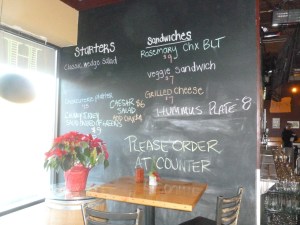 Starters
Classic wedge salad
CAESAR $6
SALAD
$9
Sandwiches
Rosemary Chx BLT
$9
veggie sandwich
$7
Grilled Cheese
$7
HUMMUS PLATE 8
PLEASE ORDER
AT COUNTER